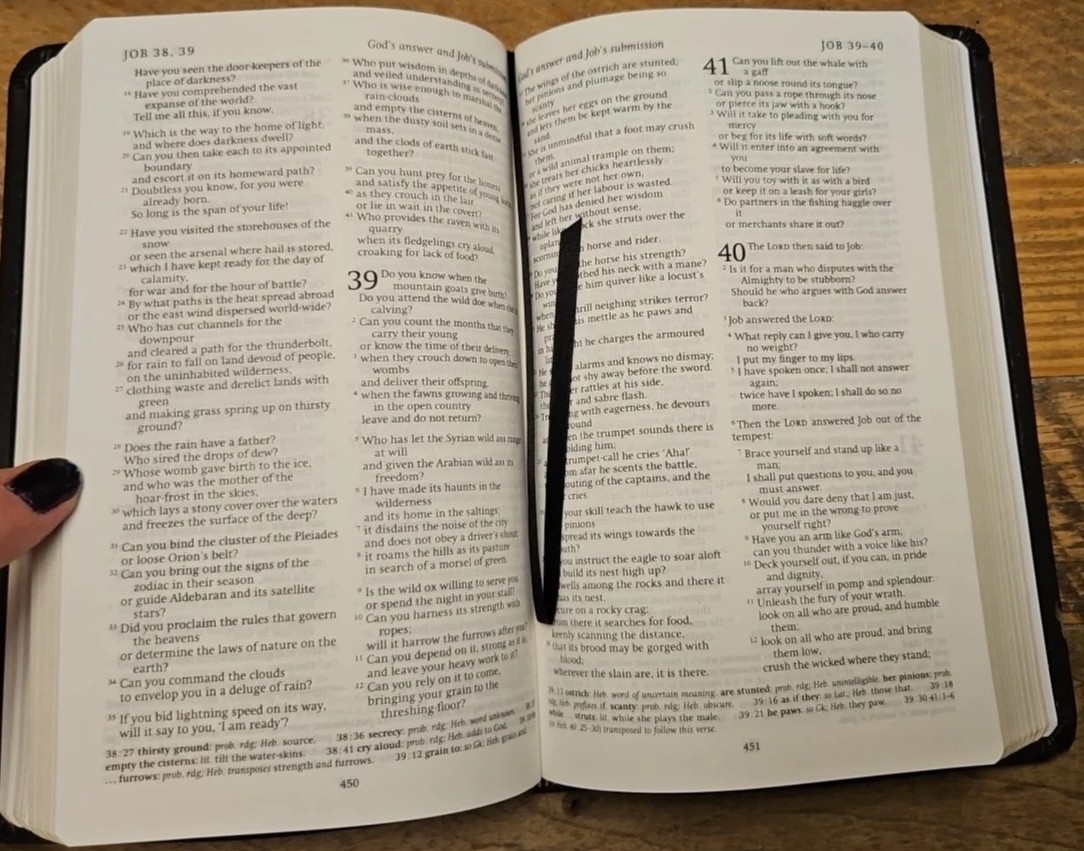 JOB 38, 39
God's answer and Job's submission
Have you seen the door-keepers of the
place of darkness?
18 Have you comprehended the vast
expanse of the world?
Tell me all this, if you know.
19 Which is the way to the home of light,
and where does darkness dwell?
20 Can you then take each to its appointed
boundary
and escort it on its homeward path?
21 Doubtless you know, for you were
already born.
So long is the span of your life!
22 Have you visited the storehouses of the
snow
or seen the arsenal where hail is stored,
23 which I have kept ready for the day of
calamity,
for war and for the hour of battle?
24 By what paths is the heat spread abroad
or the east wind dispersed world-wide?
25 Who has cut channels for the
downpour
and cleared a path for the thunderbolt,
26 for rain to fall on land devoid of people,
on the uninhabited wilderness,
27 clothing waste and derelict lands with
green
and making grass spring up on thirsty
ground?
28 Does the rain have a father?
Who sired the drops of dew?
29 Whose womb gave birth to the ice,
and who was the mother of the
hoar-frost in the skies,
30 which lays a stony cover over the waters
and freezes the surface of the deep?
31 Can you bind the cluster of the Pleiades
or loose Orion's belt?
32 Can you bring out the signs of the
zodiac in their season
or guide Aldebaran and its satellite
stars?
33 Did you proclaim the rules that govern
the heavens
or determine the laws of nature on the
earth?
34 Can you command the clouds
to envelop you in a deluge of rain?
35 If you bid lightning speed on its way,
will it say to you, 'I am ready'?
36 Who put wisdom in depths of darkness
and veiled understanding in secrecy?
37 Who is wise enough to marshal the
rain-clouds
and empty the cisterns of heaven,
38 when the dusty soil sets in a dense
mass,
and the clods of earth stick fast
together?
39 Can you hunt prey for the lioness
and satisfy the appetite of young lions
40 as they crouch in the lair
or lie in wait in the covert?
41 Who provides the raven with its
quarry
when its fledgelings cry aloud,
croaking for lack of food?
39 Do you know when the
mountain goats give birth?
Do you attend the wild doe when she is
calving?
2 Can you count the months that they
carry their young
or know the time of their delivery,
3 when they crouch down to open their
wombs
and deliver their offspring,
4 when the fawns growing and thriving
in the open country
leave and do not return?
5 Who has let the Syrian wild ass range
at will
and given the Arabian wild ass its
freedom?
6 I have made its haunts in the
wilderness
and its home in the saltings;
7 it disdains the noise of the city
and does not obey a driver's shout;
8 it roams the hills as its pasture
in search of a morsel of green.
9 Is the wild ox willing to serve you
or spend the night in your stall?
10 Can you harness its strength with
ropes;
will it harrow the furrows after you?
11 Can you depend on it, strong as it is,
and leave your heavy work to it?
12 Can you rely on it to come,
bringing your grain to the
threshing-floor?
38:27 thirsty ground: prob. rdg; Heb. source. 38:36 secrecy: prob. rdg; Heb. word unknown.
empty the cisterns: lit. tilt the water-skins. 38:41 cry aloud: prob. rdg; Heb. adds to God.
... furrows: prob. rdg; Heb. transposes strength and furrows. 39:12 grain to: so Gk; Heb. grain and
450
God's answer and Job's submission
JOB 39–40
The wings of the ostrich are stunted;
her pinions and plumage being so
scanty
she leaves her eggs on the ground
and lets them be kept warm by the
sand.
She is unmindful that a foot may crush
them,
or a wild animal trample on them;
she treats her chicks heartlessly
as if they were not her own,
not caring if her labour is wasted.
For God has denied her wisdom
and left her without sense,
while like a cock she struts over the
scorning horse and rider.
Do you the horse his strength?
Have you thed his neck with a mane?
Do you him quiver like a locust's
shrill neighing strikes terror?
his mettle as he paws and
he charges the armoured
alarms and knows no dismay;
not shy away before the sword.
rattles at his side,
and sabre flash.
with eagerness, he devours
when the trumpet sounds there is
holding him;
trumpet-call he cries 'Aha!'
from afar he scents the battle,
shouting of the captains, and the
cries.
your skill teach the hawk to use
pinions
spread its wings towards the
you instruct the eagle to soar aloft
build its nest high up?
dwells among the rocks and there it
has its nest,
secure on a rocky crag;
from there it searches for food,
keenly scanning the distance,
that its brood may be gorged with
blood;
wherever the slain are, it is there.
41 Can you lift out the whale with
a gaff
or slip a noose round its tongue?
2 Can you pass a rope through its nose
or pierce its jaw with a hook?
3 Will it take to pleading with you for
mercy
or beg for its life with soft words?
4 Will it enter into an agreement with
you
to become your slave for life?
5 Will you toy with it as with a bird
or keep it on a leash for your girls?
6 Do partners in the fishing haggle over
it
or merchants share it out?
40 The LORD then said to Job:
2 Is it for a man who disputes with the
Almighty to be stubborn?
Should he who argues with God answer
back?
3 Job answered the LORD:
4 What reply can I give you, I who carry
no weight?
I put my finger to my lips.
5 I have spoken once; I shall not answer
again;
twice have I spoken; I shall do so no
more.
6 Then the LORD answered Job out of the
tempest:
7 Brace yourself and stand up like a
man;
I shall put questions to you, and you
must answer.
8 Would you dare deny that I am just,
or put me in the wrong to prove
yourself right?
9 Have you an arm like God's arm;
can you thunder with a voice like his?
10 Deck yourself out, if you can, in pride
and dignity,
array yourself in pomp and splendour.
11 Unleash the fury of your wrath,
look on all who are proud, and humble
them;
12 look on all who are proud, and bring
them low,
crush the wicked where they stand;
39:13 ostrich: Heb. word of uncertain meaning. are stunted: prob. rdg; Heb. unintelligible. her pinions: prob.
rdg; Heb. prefixes if. scanty: prob. rdg; Heb. obscure. 39:16 as if they: so Lat.; Heb. those that. 39:18
while ... struts: lit. while she plays the male. 39:21 he paws: so Gk; Heb. they paw. 39:30 41:1-6
(in Heb. 40:25-30) transposed to follow this verse.
451